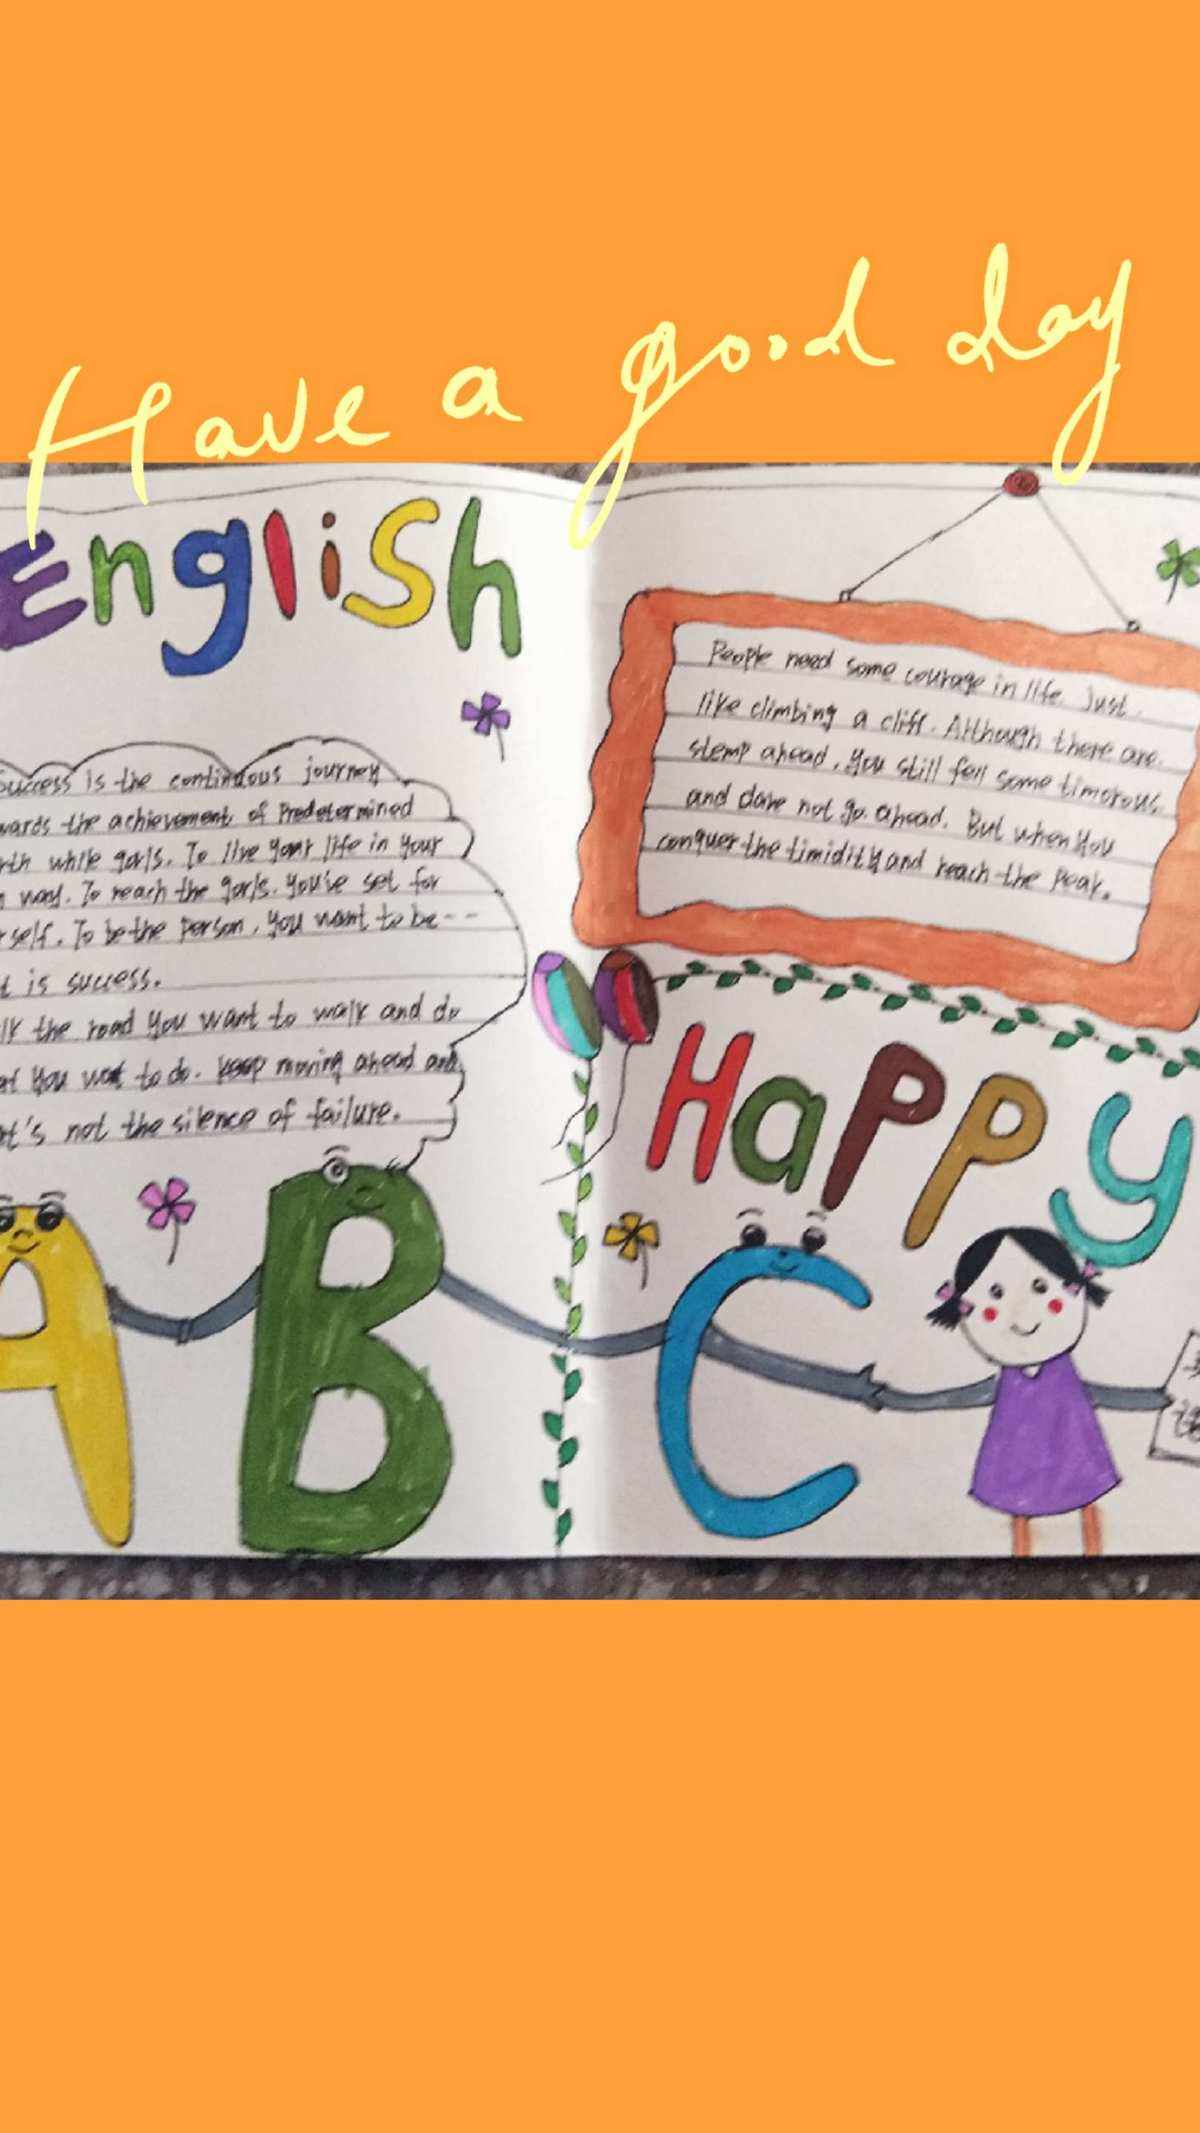 Have a good day
English
Success is the continuous journey
wards the achievement of Predetermined
rth while goals. To live your life in your
n way. To reach the goals. you've set for
rself. To be the person, you want to be--
t is success.
lk the road you want to walk and do
at you want to do. keep moving ahead and
at's not the silence of failure.
People need some courage in life. Just
like climbing a cliff. Although there are
stemp ahead, you still fell some timorous.
and dare not go ahead. But when you
conquer the timidity and reach the peak.
Happy
A B C